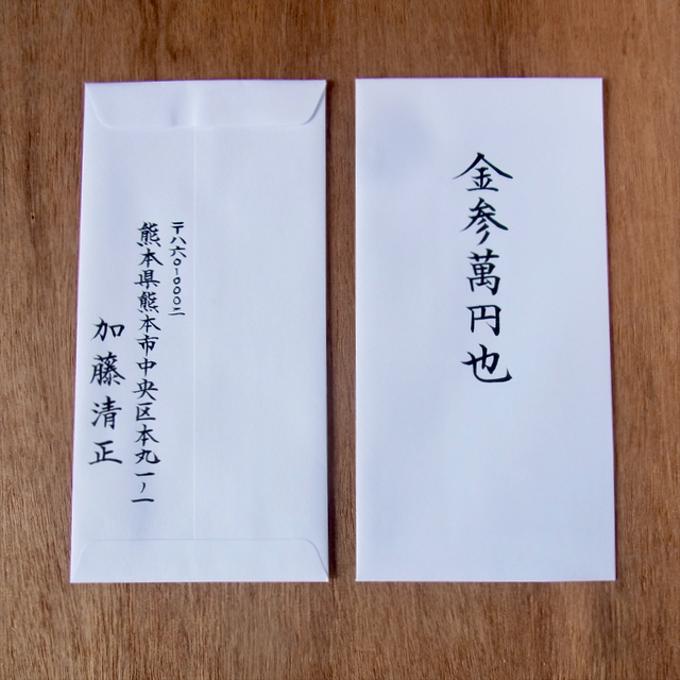 金参萬円也
〒八六〇-〇〇〇二
熊本県熊本市中央区本丸一ー一
加藤清正